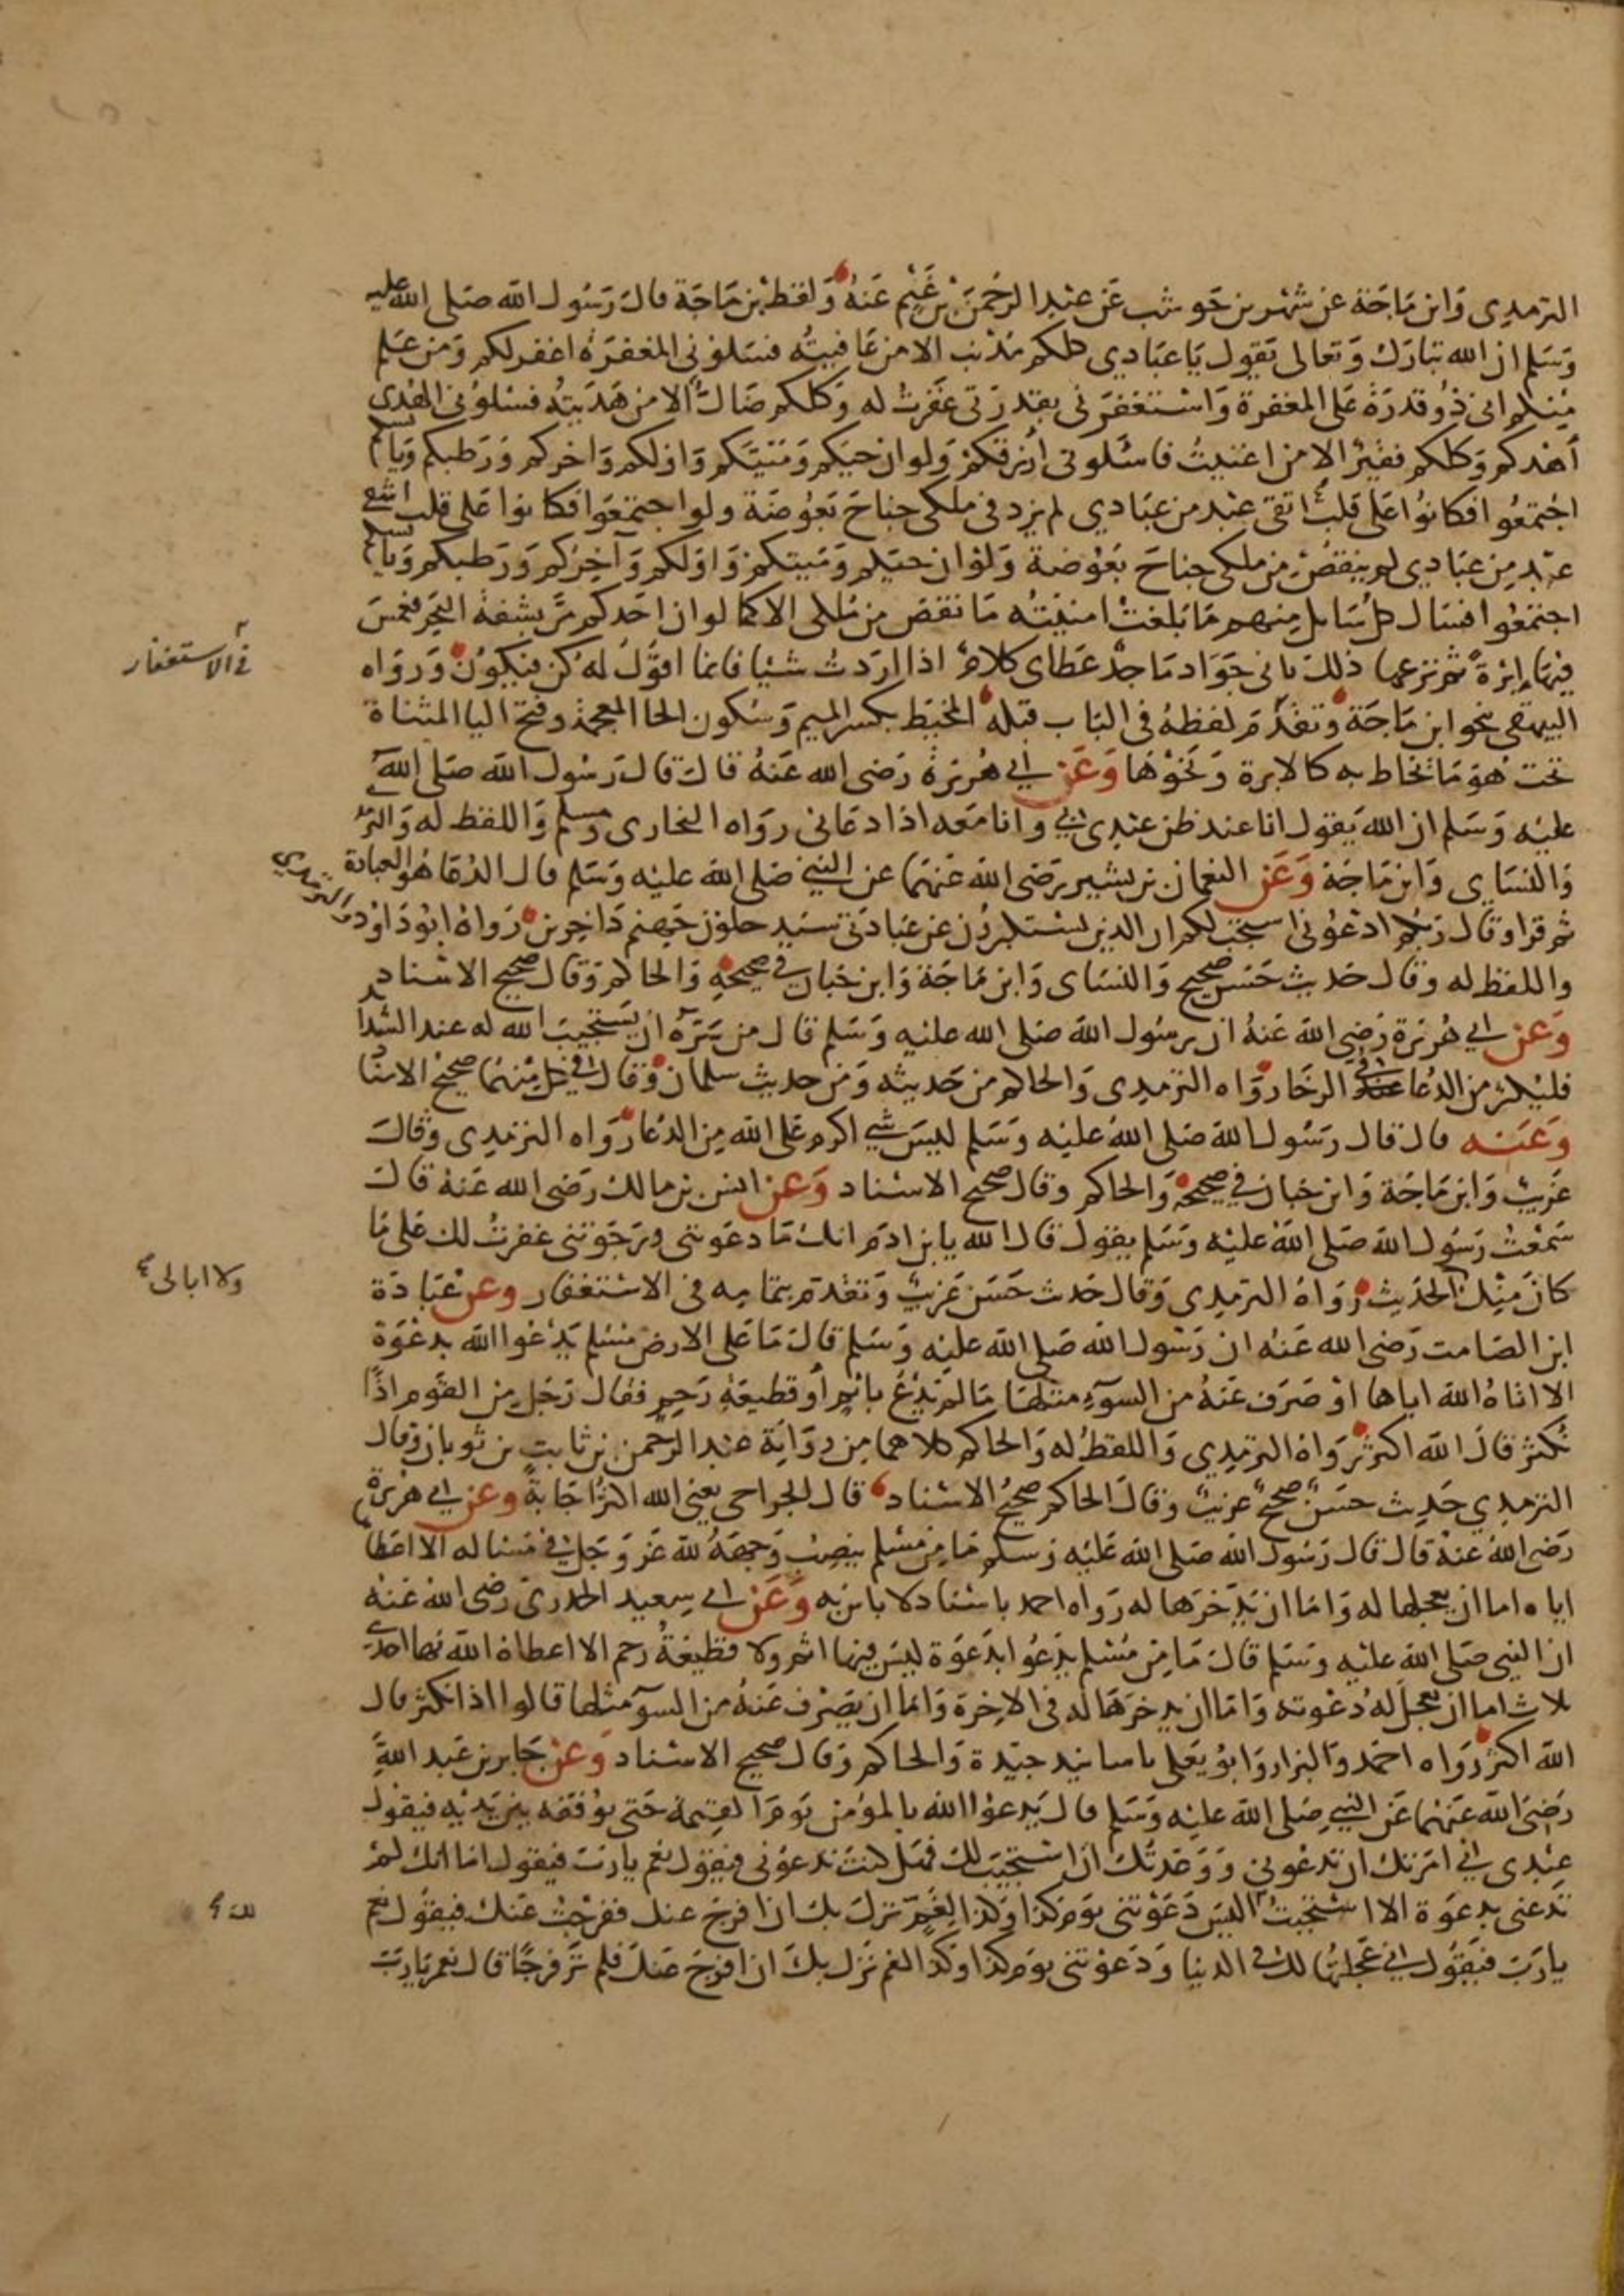 الترمدى وَابن مَاجَة عن شَهْر بن حَوشب عَن عبْد الرحمَن بْن غَنْم عَنهُ وَلفظ بْن مَاجَة قال رَسُول الله صَلى الله عليه
وَسَلم ان الله تبارَك وَتعالى يَقول يَا عبَادي كلكم مذنب الا من عَافيتُه فسَلوني المغفرَة اغفرلكم وَمن علم
منكم اني ذُو قدرَة عَلى المغفرة وَاسْتغفرَني بقدرَتى غَفرتُ له وَكلكم ضَال الا من هَدَيتهُ فسْلونى الهدى
أهْدكم وَكلكم فقيْر الا من اغنيتُ فاسْئلونى ارْزقكمْ وَلوان حيكم وَميتكم وَاولكم وَاخركم وَرَطبكم وَيابسكم
اجْتمعُوا فكانوُا عَلى قلب اتقى عبْد من عبَادي لم يزد فى ملكى جناحَ بَعُوضَة ولو اجتمعَوا فكانوا عَلى قلب اشقى
عبْد مِن عبَادي لم ينقصْ مِن ملكى جناحَ بَعُوضة وَلوْ ان حيكم وَميتكم وَاوَلكم وَآخِركم وَرَطبكم وَيابسكم
اجتمَعُوا فسَال كل سَايل مِنهم مَا بَلغت امنيتُه مَا نقص من ملكى الا كما لوان احَدكم مَرَّ بشفة البَحر فغمسَ
فِيهَا إبْرَة ثمَّ نزعها ذلك بانى جَوَاد مَاجدٌ عَطاى كلامٌ اذا ارَدتُ شيْا فانما اقوُل لهُ كن فيَكوُن وَرَوَاه
البيهقى بنحو ابن مَاجَة وَتقدَّم لفظهُ فى البَاب قبله المخيَط بكسر الميم وَسُكون الخا المعجمة وفتح اليا المثناة
تحت هوَ مَا يخاط به كالابرة وَنحْوْهَا وَعَن ابي هُريْرة رَضى الله عَنهُ قال قال رَسُول الله صَلى الله
عليْه وَسَلم ان الله يَقول انا عند ظن عبْدى بي وانا معَه اذا دعَانى روَاه البخارى وَمسلم وَاللفظ له وَالترمدى
وَالنسَاى وَابن مَاجَة وَعَن النعمان بن بشير رَضى الله عَنهَمَا عن النبيّ صَلى الله عليْه وَسَلم قال الدُعَا هُوَ العبادة
ثمَّ قرا وَقال رَبُكم ادْعُونى اسْتجب لكم ان الذين يسْتكبرُون عن عبَادَتى سَيَدخلوُن جهنم دَاخِرين رَوَاهُ ابوُدَاوُد والترمدى
واللفظ له وقال حَديث حَسَن صَحيح وَالنسَاى وَابن مَاجَة وَابن حبَان في صحيحهِ وَالحاكم وَقال صحيح الاسْناد
وَعَن ابي هُريْرة رَضى الله عَنهُ ان رسُول الله صَلى الله عليْه وَسَلم قال من سَرّهُ ان يَسْتجيبَ الله له عند الشدايد
فليُكثر من الدُعَا في الرخَا روَاه الترمدى وَالحاكم من حَديثه وَمن حديث سلمان وَقال فى كل مِنهُمَا صحيْح الاسنا
وَعَنه قال قال رَسُول الله صَلى الله عليْه وَسَلم ليسَ شي اكرم عَلى الله مِن الدُعَا رَوَاه الترمدى وَقال
غَريْب وَابن مَاجَة وَابن حبان في صحيحهِ وَالحاكم وقال صحيح الاسْناد وَعَن انس بن مالك رَضى الله عَنهُ قال
سَمْعتُ رَسُول الله صَلى الله عليْه وَسَلم يقول قال الله يا بن ادَم انك مَا دعَوتنى ورَجَوْتنى غفرتُ لك عَلى مَا
كانَ مِنْك الحديث رَوَاهُ الترمدى وَقال حَديث حَسَن غَريْب وَتقدَّم بتمامه فى الاسْتغفار وعن عُبَادَة
ابن الصَامت رَضى الله عَنهُ ان رَسُول الله صَلى الله عليْه وَسَلم قال مَا عَلى الارض مُسْلم يَدْعُوا الله بدعْوَة
الا اتاهُ الله اياها اوْ صَرَف عَنهُ من السوْءِ مثلهَا مَا لم يَدْعُ باثمٍ أو قطيعَةِ رَحِم فقال رَجُل مِن القَوم اذًا
نُكثر قال الله اكثر رَوَاهُ الترمِدي وَاللفظ له وَالحاكم كلاهما مِن روَايَة عبْد الرّحمن بن ثابتِ بن ثوبان وَقال
الترمِدي حَدِيث حسَنٌ صحيحٌ غريبٌ وَقال الحاكم صحيحُ الاسْناد قال الجراحى يعنى الله اكثرُ اجَابَة وعن ابي هُريْرة
رَضى الله عَنهُ قال قال رَسُول الله صَلى الله عَليْه وَسلم مَا مِن مُسْلم ينصِبُ وَجههُ لله عَز وَجَل فى مَسْاله الا اعطاه
اياه اما ان يعجلها له وَامّا ان يَدَّخرَها له رَوَاه احمد باسْناد لا باس به وَعَن ابي سِعيد الخدرى رَضى الله عَنهُ
ان النبى صَلى الله عليْه وَسَلم قال مَا مِن مُسْلم يَدْعُوا بدَعوَة ليسَ فِيها اثم ولا قطيعةُ رحم الا اعطاهُ الله بها احدى
ثلاث اما ان يعجلَ لهُ دَعْوته وَامّا ان يدخرَهَا لهُ فى الاخِرة وَامّا ان يَصْرف عَنهُ من السوْء مثلها قالوا اذا نكثر قال
الله اكثر رَوَاه احمَد وَالبزار وَابوُ يَعلى باسانيد جيّدة وَالحاكم وَقال صحيح الاسْناد وَعَن جَابر بن عَبد اللهِ
رَضىَ الله عَنهُمَا عَن النبي صَلى الله عليْه وَسَلم قال يَدعوُا الله بالمؤمن يَومَ القيمة حَتى يوُقفه بيْن يَدَيْه فيقول
عبْدى اني امَرتك ان تدْعُوني وَوَعَدتُك ان اسْتجيْبَ لك فهَل كنتَ تدعوُنى فيقول نعَم يارَب فيقول امَا انك لمْ
تدْعنى بدعوَة الا اسْتجبتُ اليسَ دَعَوْتنى يَوم كذا وَكذا لِغَمٍّ نزلَ بك ان افرجَ عنك ففرَّجْتُ عَنك فيقوُل نعم
يارَبّ فيَقوُل اني عَجلتها لك فى الدنيا وَدَعَوْتنى يومَ كذا وكذا لغم نزَل بكَ ان افرجَ عَنكَ فلم تَر فرَجًا قال نعم يَارَبّ
في الاستغفار
ولا ابالى
لك